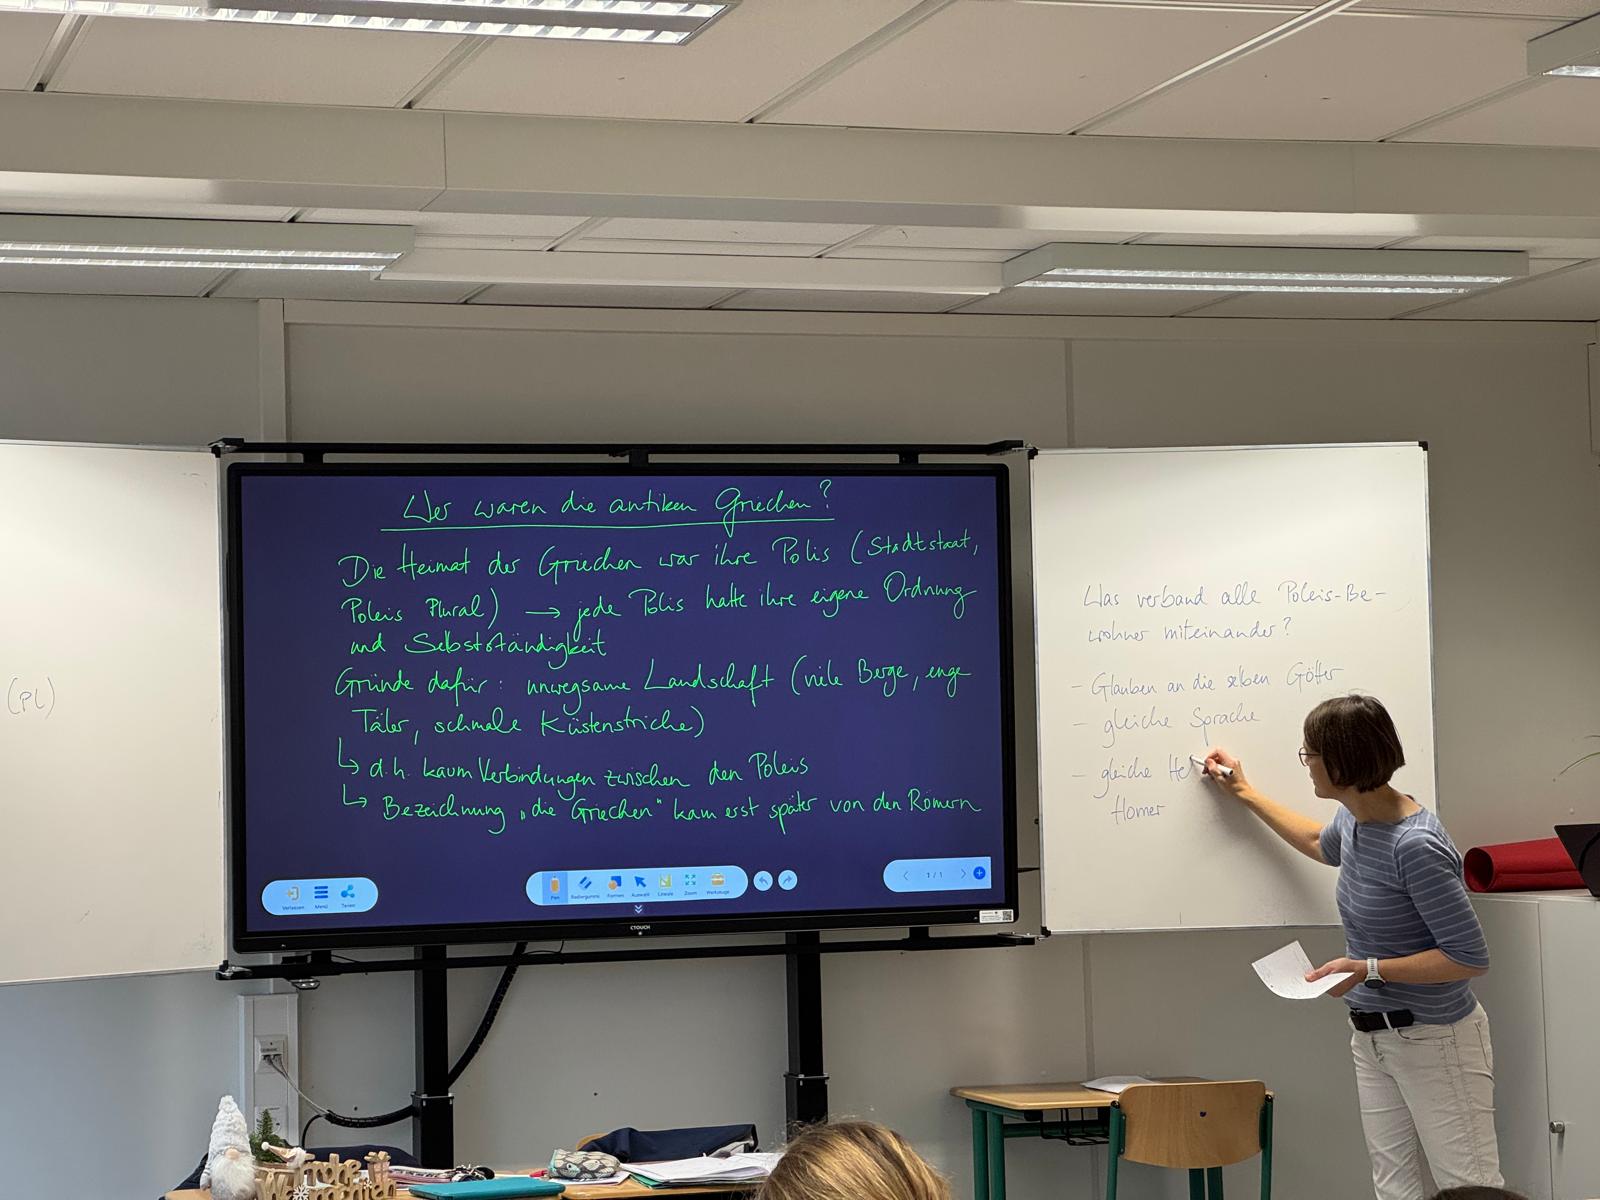 (PL)
Wer waren die antiken Griechen?
Die Heimat der Griechen war ihre Polis (Stadtstaat,
Poleis Plural) → jede Polis hatte ihre eigene Ordnung
und Selbstständigkeit
Gründe dafür: unwegsame Landschaft (viele Berge, enge
Täler, schmale Küstenstriche)
↳ d.h. kaum Verbindungen zwischen den Poleis
↳ Bezeichnung „die Griechen" kam erst später von den Römern
Verlassen Menü Teilen
Pen Radiergummi Formen Auswahl Lineale Zoom Werkzeuge
1 / 1
CTOUCH
Was verband alle Poleis-Be-
wohner miteinander?
- Glauben an die selben Götter
- gleiche Sprache
- gleiche He
Homer
Frohe
Weihnachten